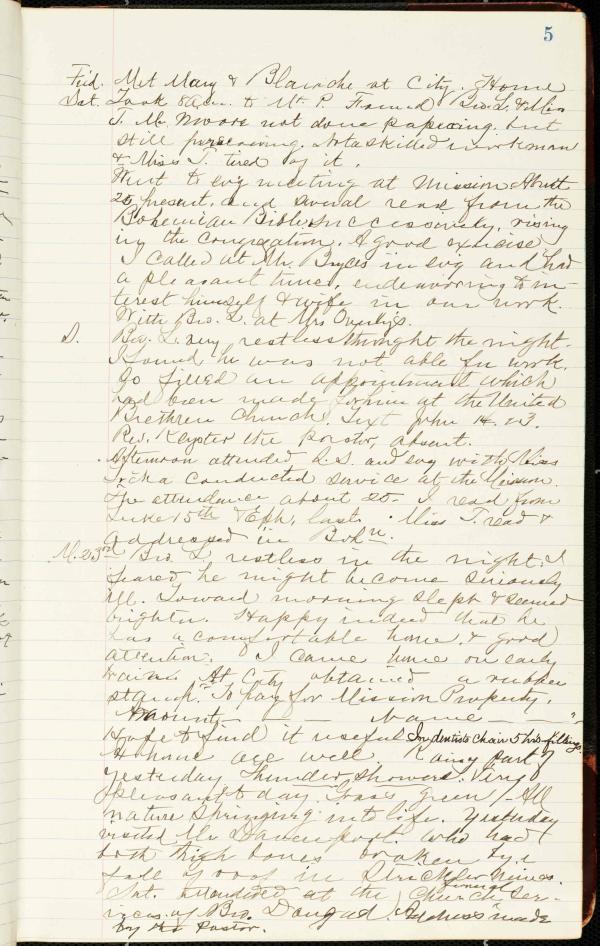 5
Frid. Met Mary & Blanche at City. Home
Sat. Took 8 a.m. to Mt. P. Found Bro. L. & Miss
T. Mr. Moore not done papering, but
still persevering. Not a skilled workman
& Miss T. tired by it.
Went to evg meeting at Mission About
20 present, and several read from the
Bohemian Bible successively, rising
in the Congregation. A good exercise
I called at Mr. in evg and had
a pleasant time, endeavoring to in-
terest himself & wife in our work.
With Bro. L. at Mrs
S. Bro. L. very restless throught the night.
I found he was not able for work.
So filled an appointment which
had been made for him at the United
Brethren Church. Text John 14. 23.
Rev. the pastor, absent.
Afternoon attended S.S. and evg with Miss
conducted service at the Mission.
The attendance about 20. I read from
Luke 15th & Eph. last. Miss T. read &
addressed in Bohn.
M. 23rd Bro. L. restless in the night. I
feared he might become seriously
ill. Toward morning slept & seemed
brighter. Happy indeed that he
has a comfortable home, & good
attention. I came home on early
train. At City obtained a rubber
stamp. "To pay for Mission Property.
Amount — Name — "
Hope to find it useful In dentists chair 5 hrs fillings.
At home all well. Rainy part of
yesterday Thunder showers. Very
pleasant day. Grass green / All
nature springing into life. Yesterday
visited Mr. Davenport. who had
both thigh bones broken by a
fall of roof in Mines.
Sat. attended at the Church funeral Ser-
vices of Bro. Address made
by the Pastor.